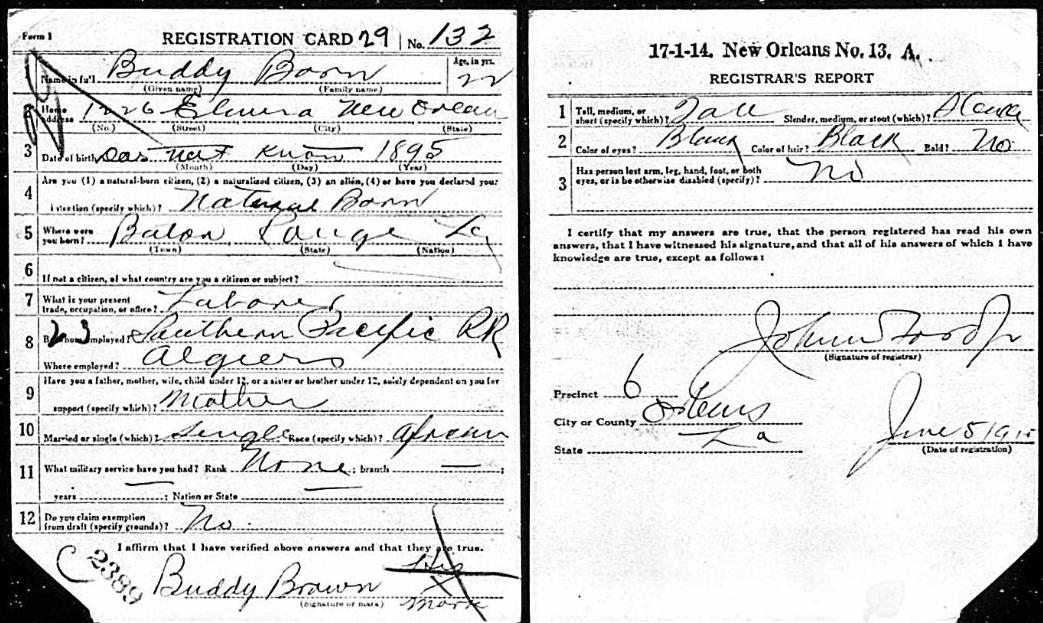 Form 1 REGISTRATION CARD 29 No. 132
Name in full Buddy Born Age, in yrs. 22
(Given name) (Family name)
Home address 1226 Elmira New Orlean
(No.) (Street) (City) (State)
3 Date of birth Das not know 1895
(Month) (Day) (Year)
4 Are you (1) a natural-born citizen, (2) a naturalized citizen, (3) an alien, (4) or have you declared your
intention (specify which)? Natural Born
5 Where were you born? Baton Rouge La
(Town) (State) (Nation)
6 If not a citizen, of what country are you a citizen or subject?
7 What is your present trade, occupation, or office? Laborer
8 By whom employed? Southern Pacific RR
Where employed? Algiers
9 Have you a father, mother, wife, child under 12, or a sister or brother under 12, solely dependent on you for
support (specify which)? Mother
10 Married or single (which)? Single Race (specify which)? African
11 What military service have you had? Rank None; branch —;
years —; Nation or State —
12 Do you claim exemption from draft (specify grounds)? No
I affirm that I have verified above answers and that they are true.
C 2389
Buddy Brown His
(Signature or mark) Mark
17-1-14. New Orleans No. 13. A.
REGISTRAR'S REPORT
1 Tall, medium, or short (specify which)? Tall Slender, medium, or stout (which)? Slender
2 Color of eyes? Black Color of hair? Black Bald? No
3 Has person lost arm, leg, hand, foot, or both eyes, or is he otherwise disabled (specify)? No
I certify that my answers are true, that the person registered has read his own
answers, that I have witnessed his signature, and that all of his answers of which I have
knowledge are true, except as follows:
(Signature of registrar)
Precinct 6
City or County Orleans
State La June 5
(Date of registration)